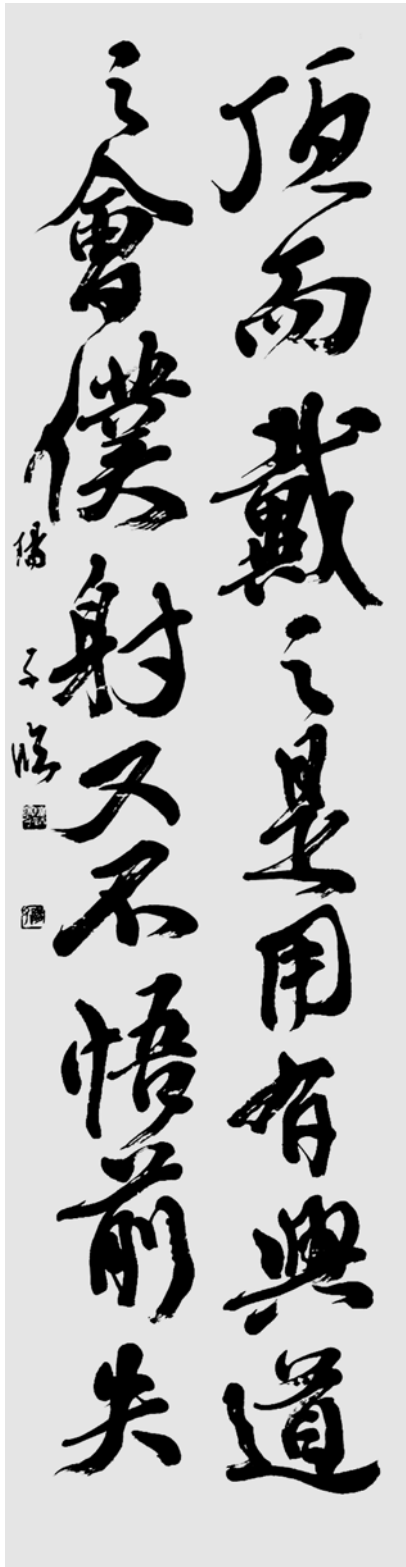 頂而戴之是用有興道
之會僕射又不悟前失
子臨